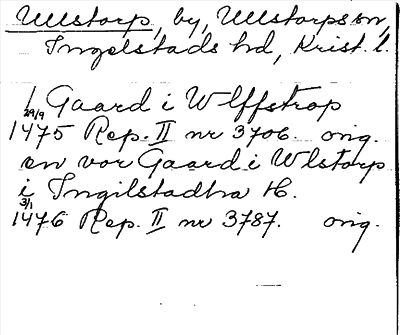 Ullstorp, by, Ullstorps sn,
Ingelstads hd, Krist. l.
1 Gaard i Wlffstrop
29/9
1475 Rep. II nr 3706. orig.
en vor Gaard i Wlstorp
i Ingilstadha H.
3/1
1476 Rep. II nr 3787. orig.